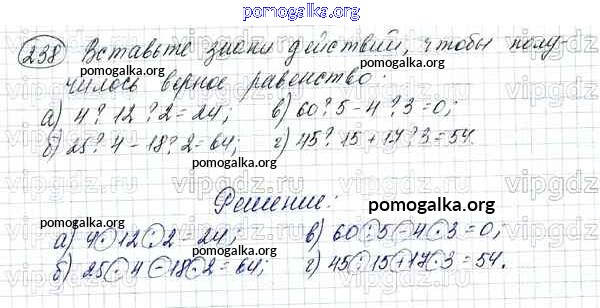 pomogalka.org
238 Вставьте знаки действий, чтобы полу-
чилось верное равенство:
pomogalka.org
pomogalka.org
а) 4 ? 12 ? 2 = 24; в) 60 ? 5 - 4 ? 3 = 0;
б) 25 ? 4 - 18 ? 2 = 64; г) 45 ? 15 + 17 ? 3 = 54.
pomogalka.org
vipgdz.ru vipgdz.ru vipgdz.ru
Решение:
pomogalka.org
pomogalka.org
а) 4 · 12 : 2 = 24; в) 60 : 5 - 4 · 3 = 0;
б) 25 · 4 - 18 · 2 = 64; г) 45 : 15 + 17 · 3 = 54.
pomogalka.org
pomogalka.org